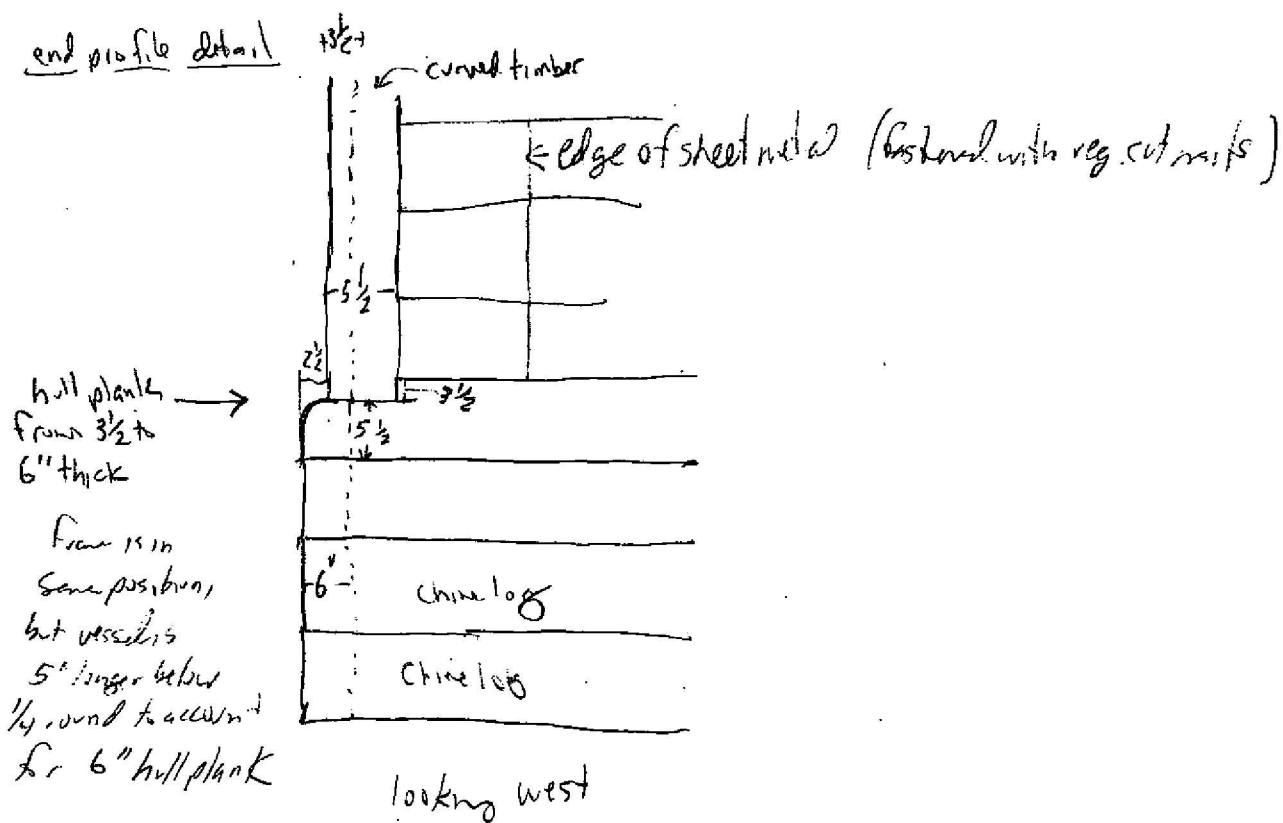 end profile detail
3 1/2
curved timber
edge of sheet metal (fastened with reg. cut nails)
5 1/2
2 1/2
hull planks
from 3 1/2 to
6" thick
3 1/2
5 1/2
frame is in
same position,
but vessel is
5" longer below
1/4 round to account
for 6" hull plank
6"
chine log
Chine log
looking west